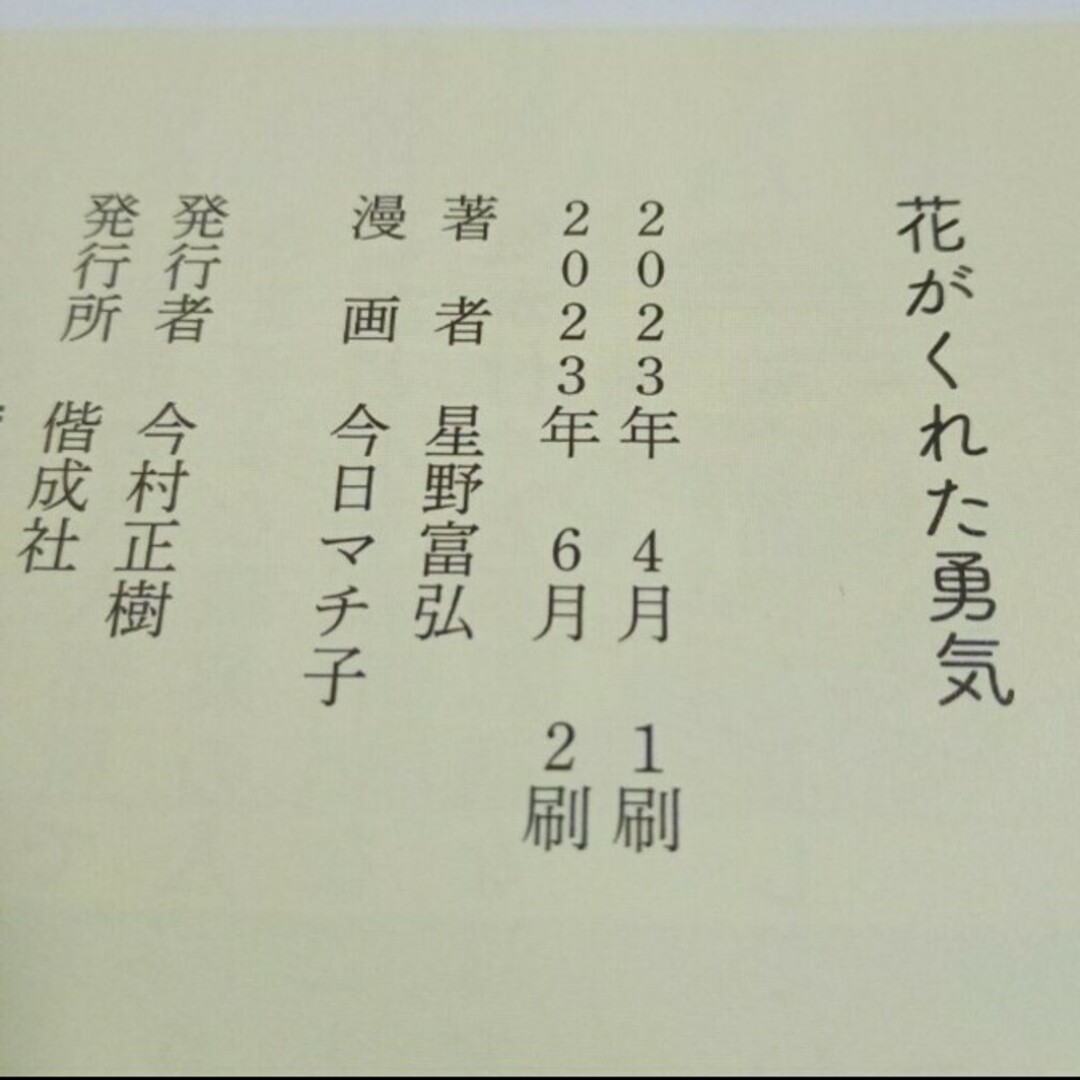 花がくれた勇気
2023年 4月 1刷
2023年 6月 2刷
著者 星野富弘
漫画 今日マチ子
発行者 今村正樹
発行所 偕成社